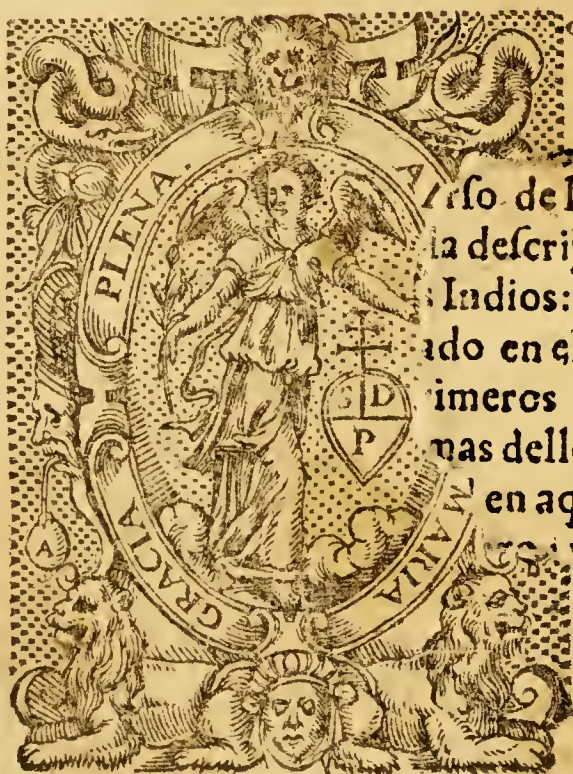 A
MARIA
GRACIA
PLENA.
S D
P
A
rſo de
la deſcri
Indios:
ado en el
imeros
mas dell
en aq